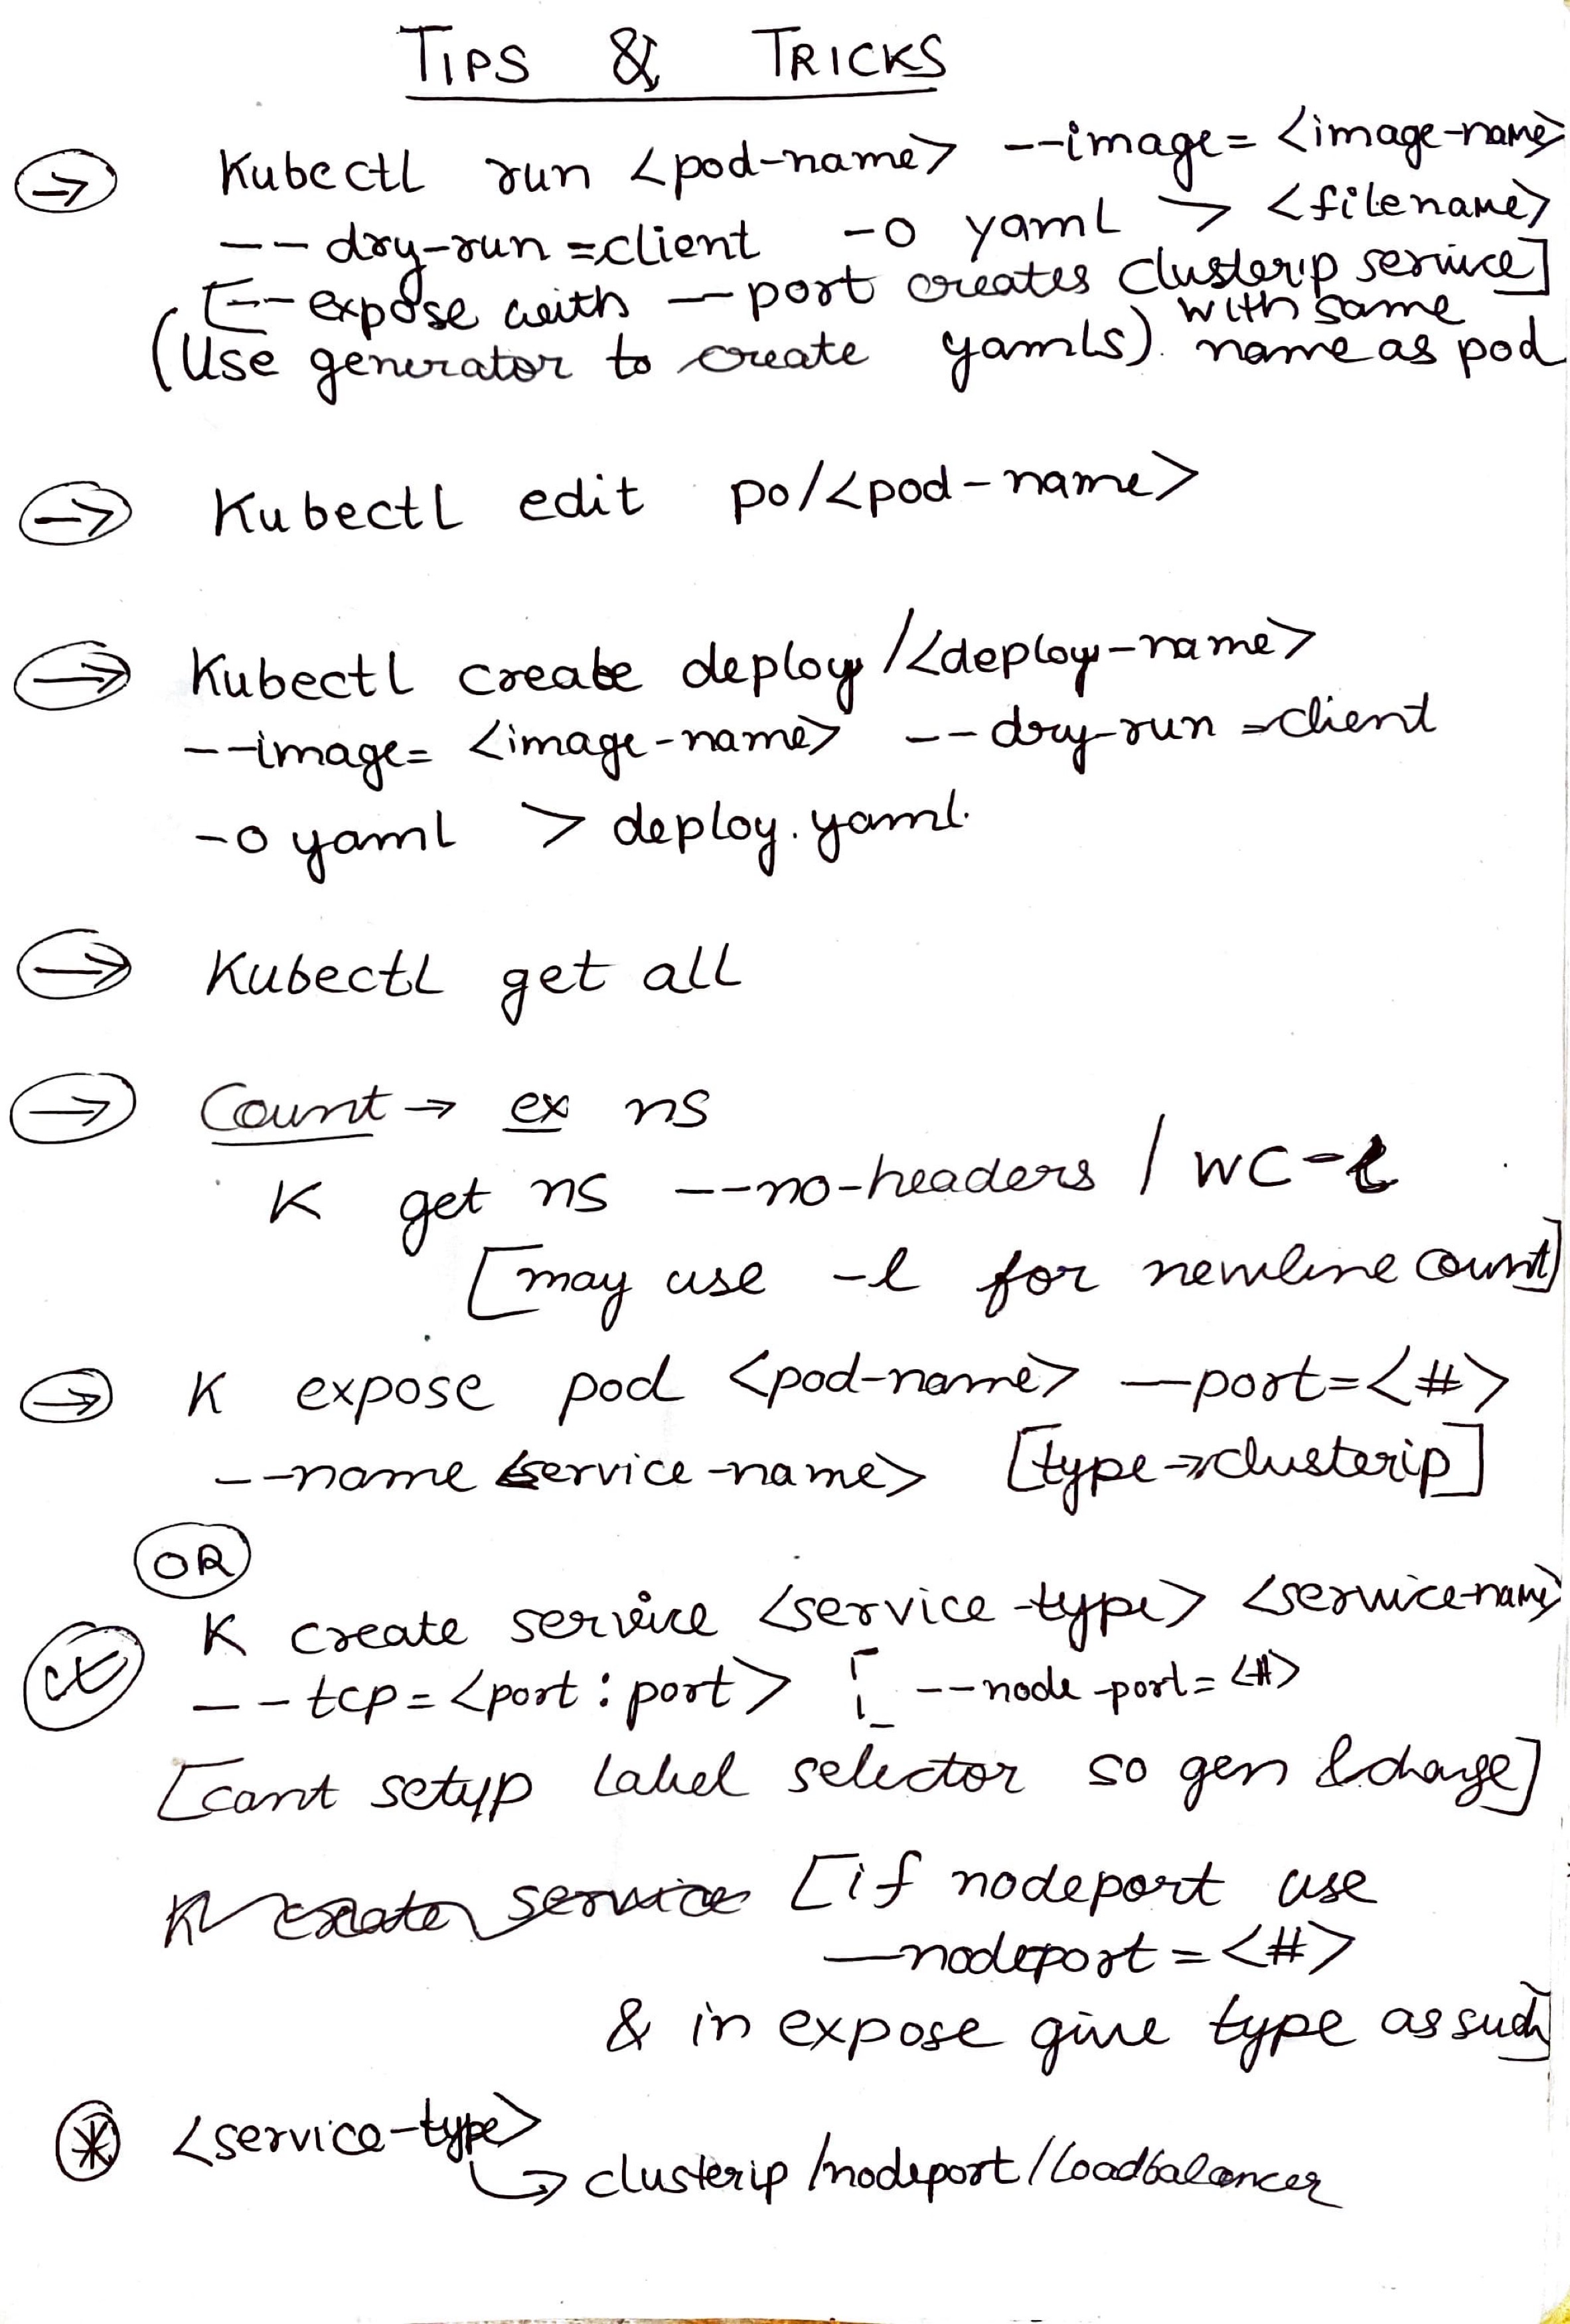 TIPS & TRICKS
Kubectl run <pod-name> --image= <image-name>
--dry-run =client -o yaml > <filename>
[--expose with --port creates clusterip service]
with same
(Use generator to create yamls). name as pod
Kubectl edit po/<pod-name>
Kubectl create deploy /<deploy-name>
--image= <image-name> --dry-run =client
-o yaml > deploy.yaml.
Kubectl get all
Count → ex ns
K get ns --no-headers | wc -l
[may use -l for newline count]
K expose pod <pod-name> —port=<#>
--name <service-name> [type → clusterip]
OR
K create service <service-type> <service-name>
--tcp=<port:port> [ --node-port= <#>
[cant setup label selector so gen & change]
K create service [if nodeport use
—nodeport = <#>
& in expose give type as such]
* <service-type>
↳ clusterip /nodeport /loadbalancer